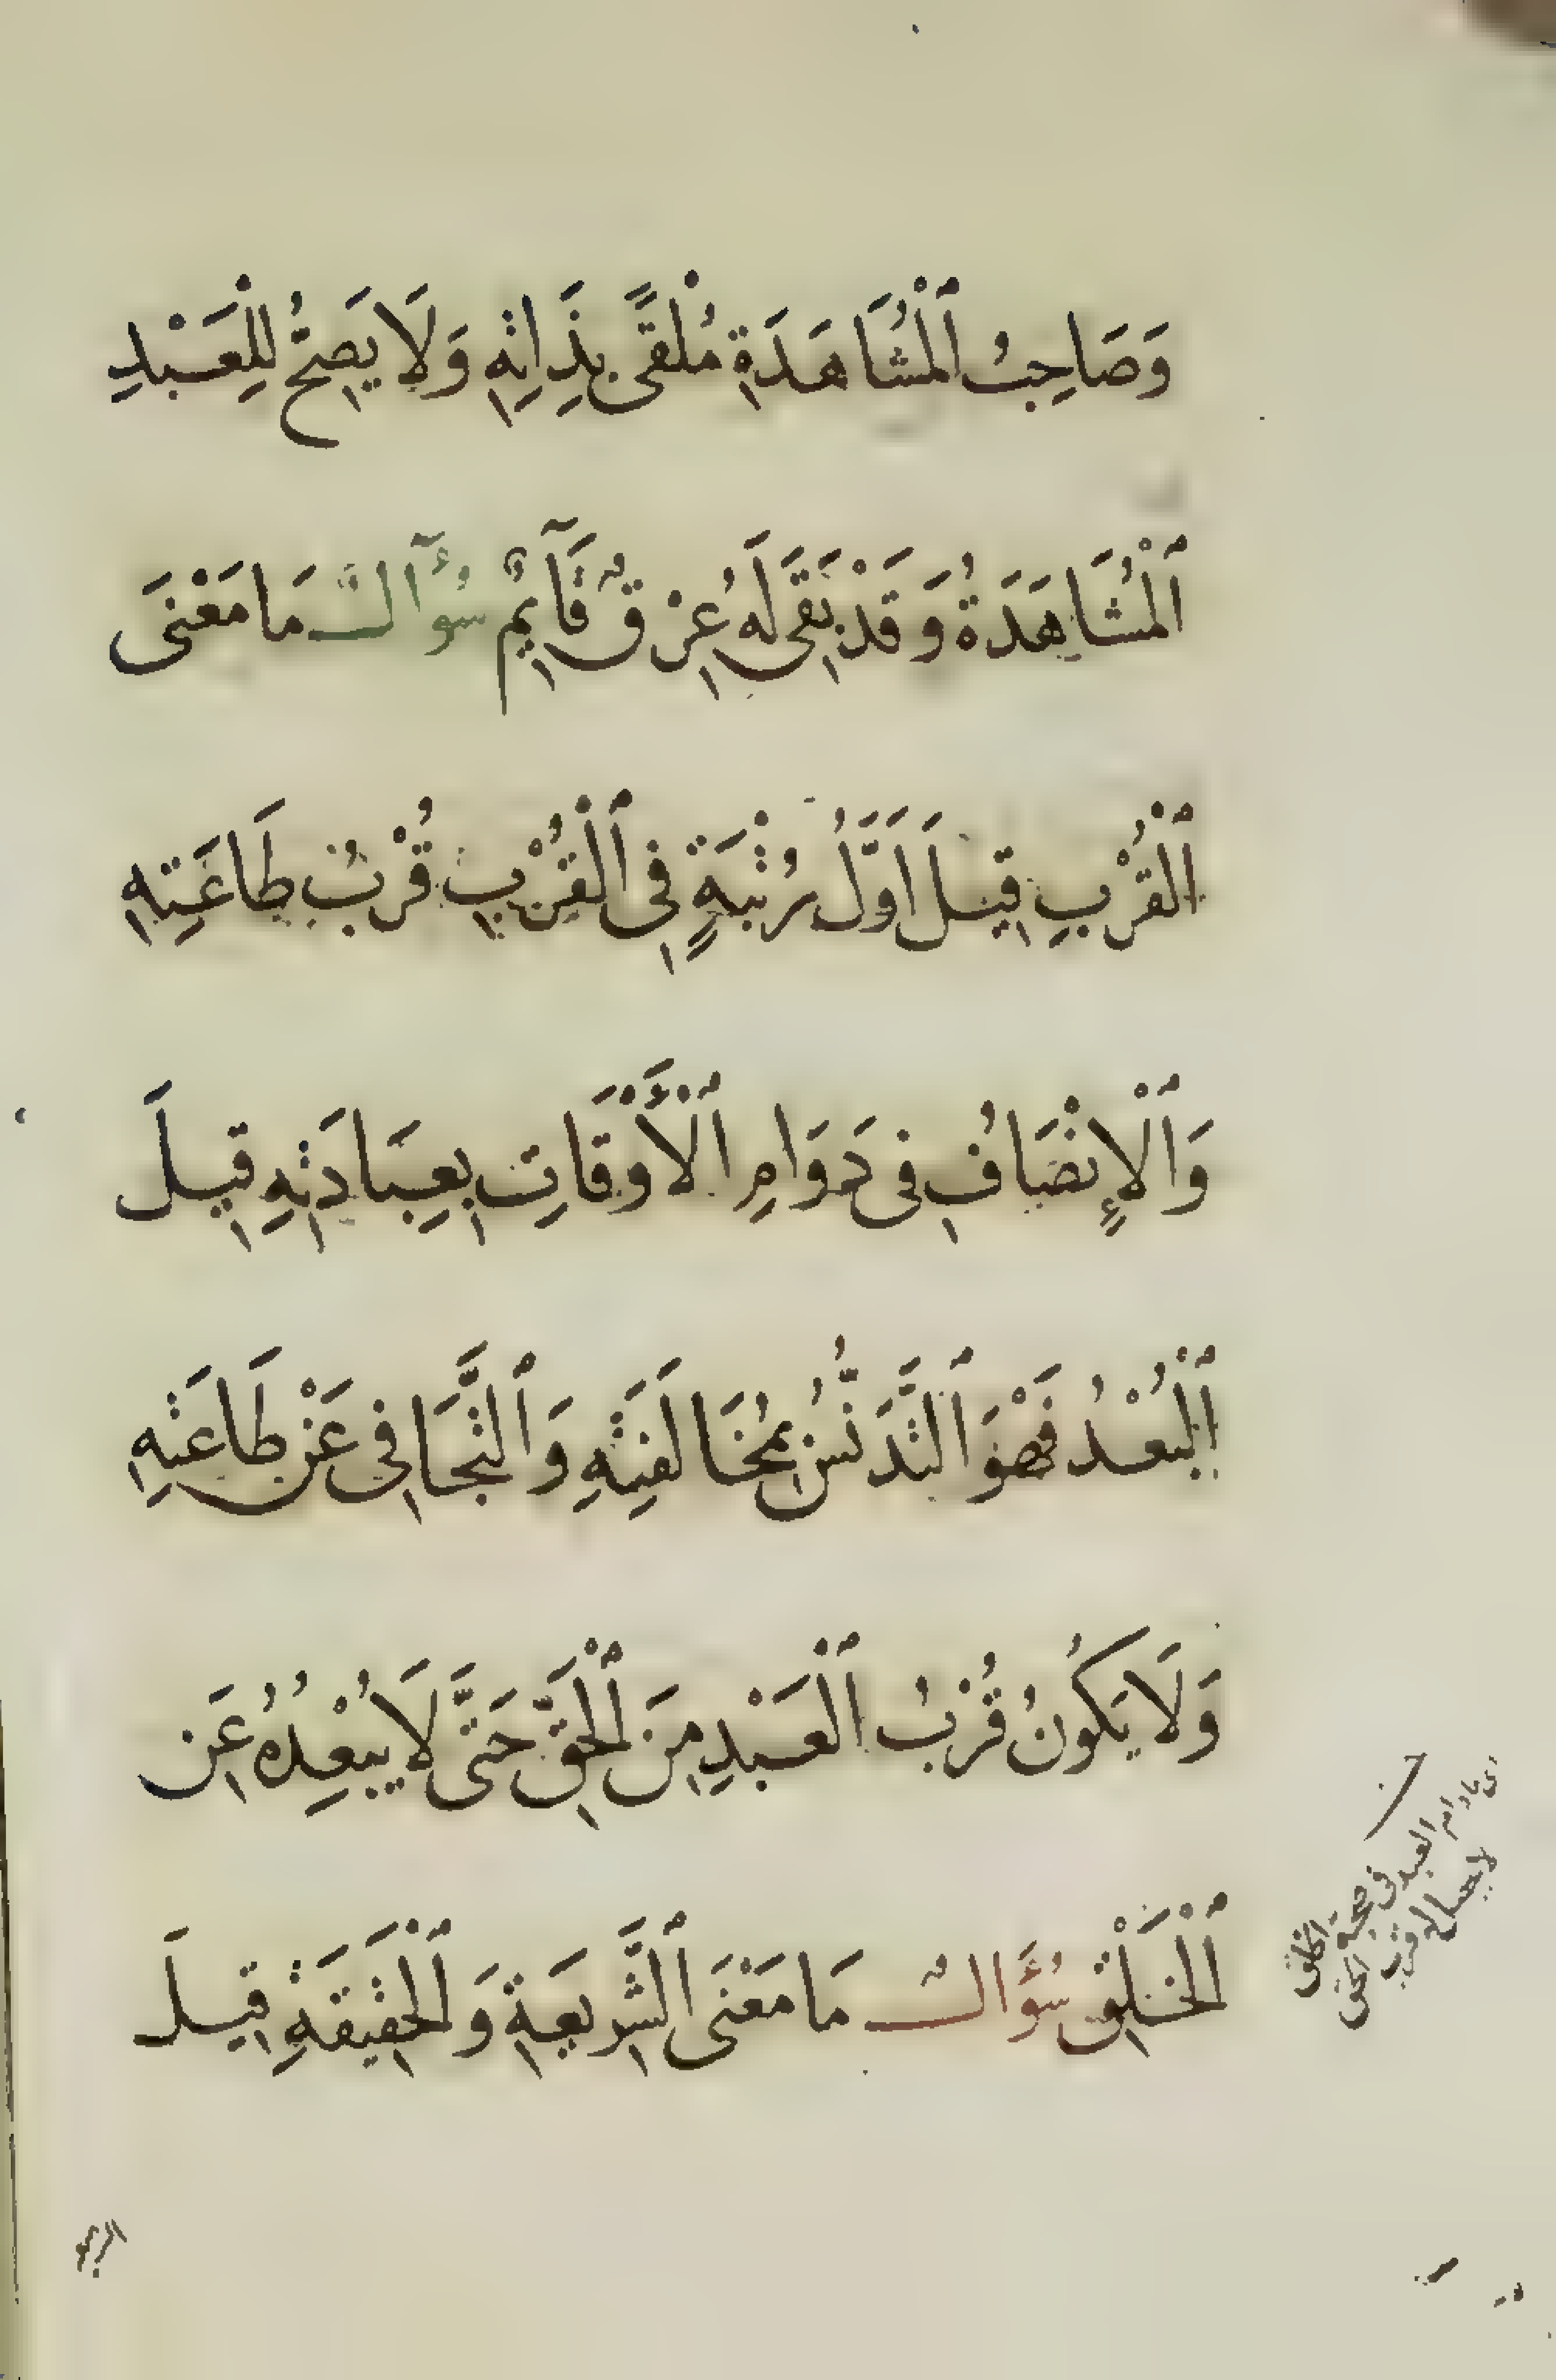 وَصَاحِبُ ٱلْمُشَاهَدَةِ مُلْقًى بِذَاتِهِ وَلَا يَصِحُّ لِلْعَبْدِ
ٱلْمُشَاهَدَةُ وَقَدْ بَقَى لَهُ عِرْقٌ قَآئِمٌ سُؤَآلٌ مَا مَعْنَى
ٱلْقُرْبِ قِيلَ اَوَّلُ رُتْبَةٍ فِى ٱلْقُرْبِ قُرْبُ طَاعَتِهِ
وَٱلْإِنْصَافُ فِى دَوَامِ ٱلْأَوْقَاتِ بِعِبَادَتِهِ قِيلَ
ٱلْبُعْدُ فَهْوَ ٱلتَّدَنُّسُ بِمُخَالَفَتِهِ وَٱلتَّجَافِى عَنْ طَاعَتِهِ
وَلَا يَكُونُ قُرْبُ ٱلْعَبْدِ مِنَ ٱلْحَقِّ حَتَّى لَا يُبْعِدُهُ عَنِ
ٱلْخَلْقِ سُؤَالٌ مَا مَعْنَى ٱلشَّرِيعَةِ وَٱلْحَقِيقَةِ قِيلَ
مادام العبد فى صحبة الخلق
لا يصل الى قرب الحق